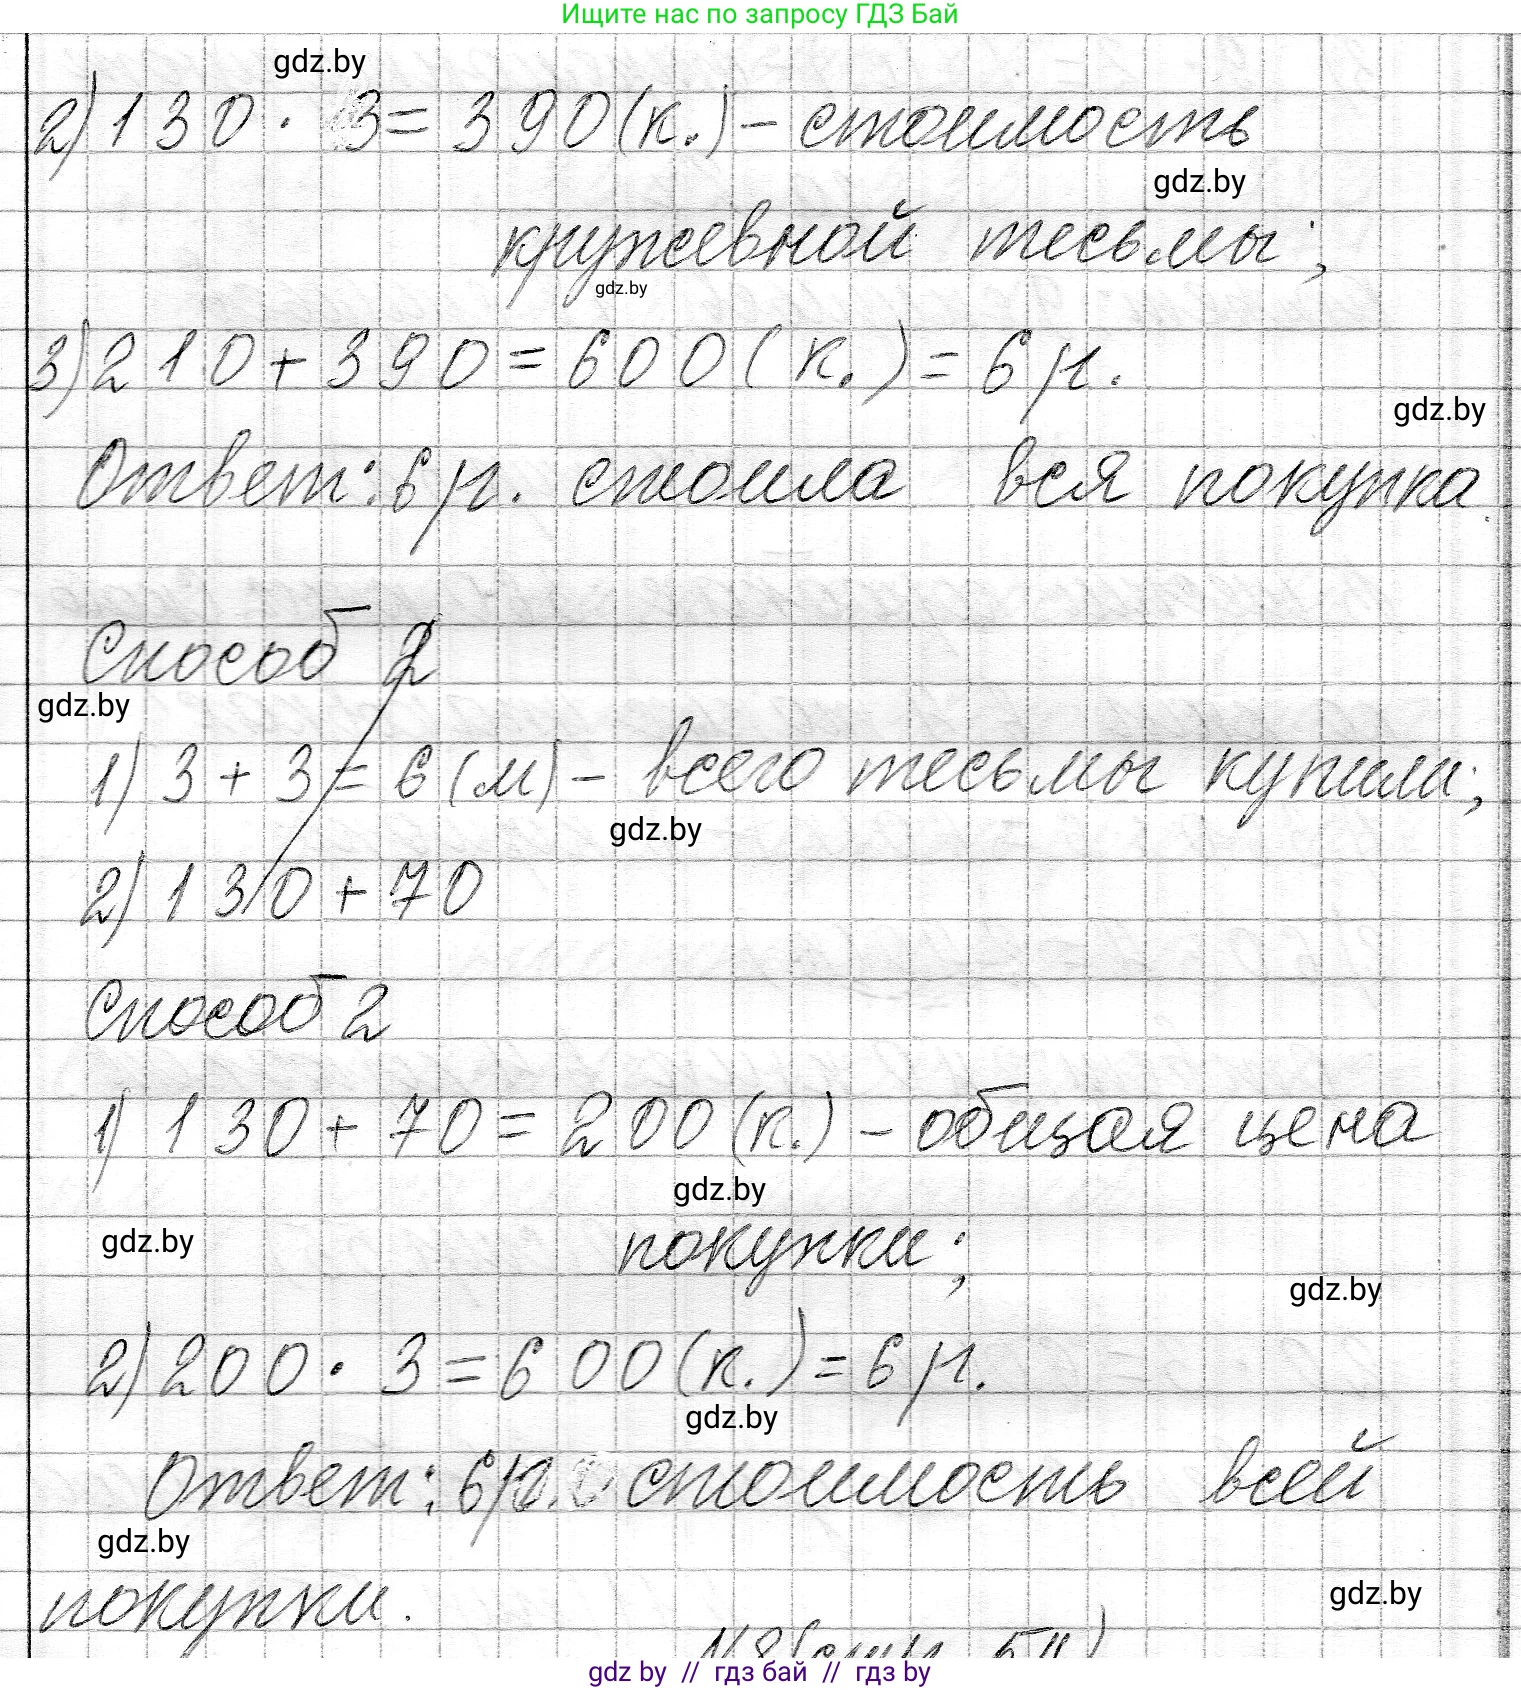 Ищите нас по запросу ГДЗ Бай
gdz.by
2) 130 · 3 = 390 (к.) – стоимость
gdz.by
кружевной тесьмы;
gdz.by
3) 210 + 390 = 600 (к.) = 6 р.
gdz.by
Ответ: 6 р. стоила вся покупка.
Способ 2
gdz.by
1) 3 + 3 = 6 (м) – всего тесьмы купили;
gdz.by
2) 130 + 70
Способ 2
1) 130 + 70 = 200 (к.) – общая цена
gdz.by
gdz.by
покупки;
gdz.by
2) 200 · 3 = 600 (к.) = 6 р.
gdz.by
Ответ: 6 р. стоимость всей
gdz.by
покупки.
gdz.by
gdz by // гдз бай // гдз by